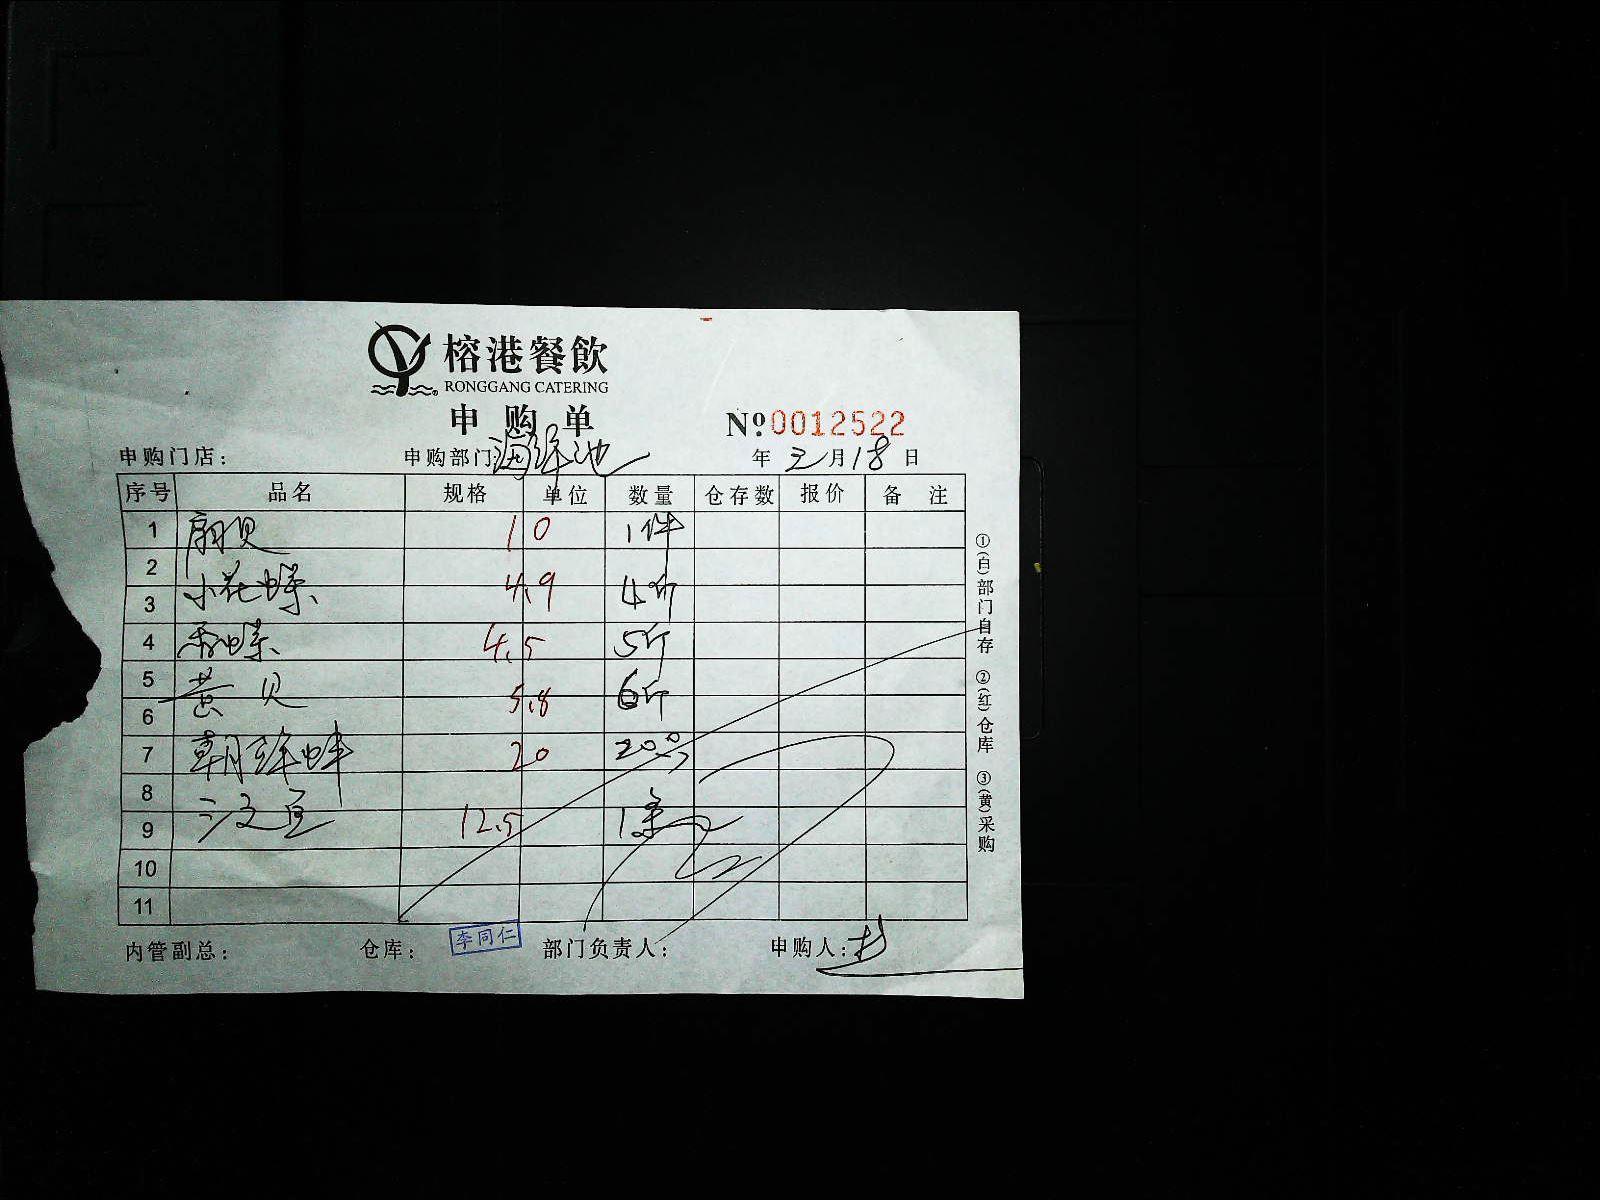 榕港餐飲
RONGGANG CATERING
申购单
Nº 0012522
申购门店： 申购部门 海鲜池 年 三月18日
序号 品名 规格 单位 数量 仓存数 报价 备注
1 扇贝 10 1件
2
3 小花螺 4.9 4斤
4 香螺 4.5 5斤
5 黄贝 5.8 6斤
6
7 朝鲜蚌 20 20只
8
9 三文鱼 12.5 1条
10
11
①(白)部门自存 ②(红)仓库 ③(黄)采购
内管副总： 仓库： 李同仁 部门负责人： 申购人：